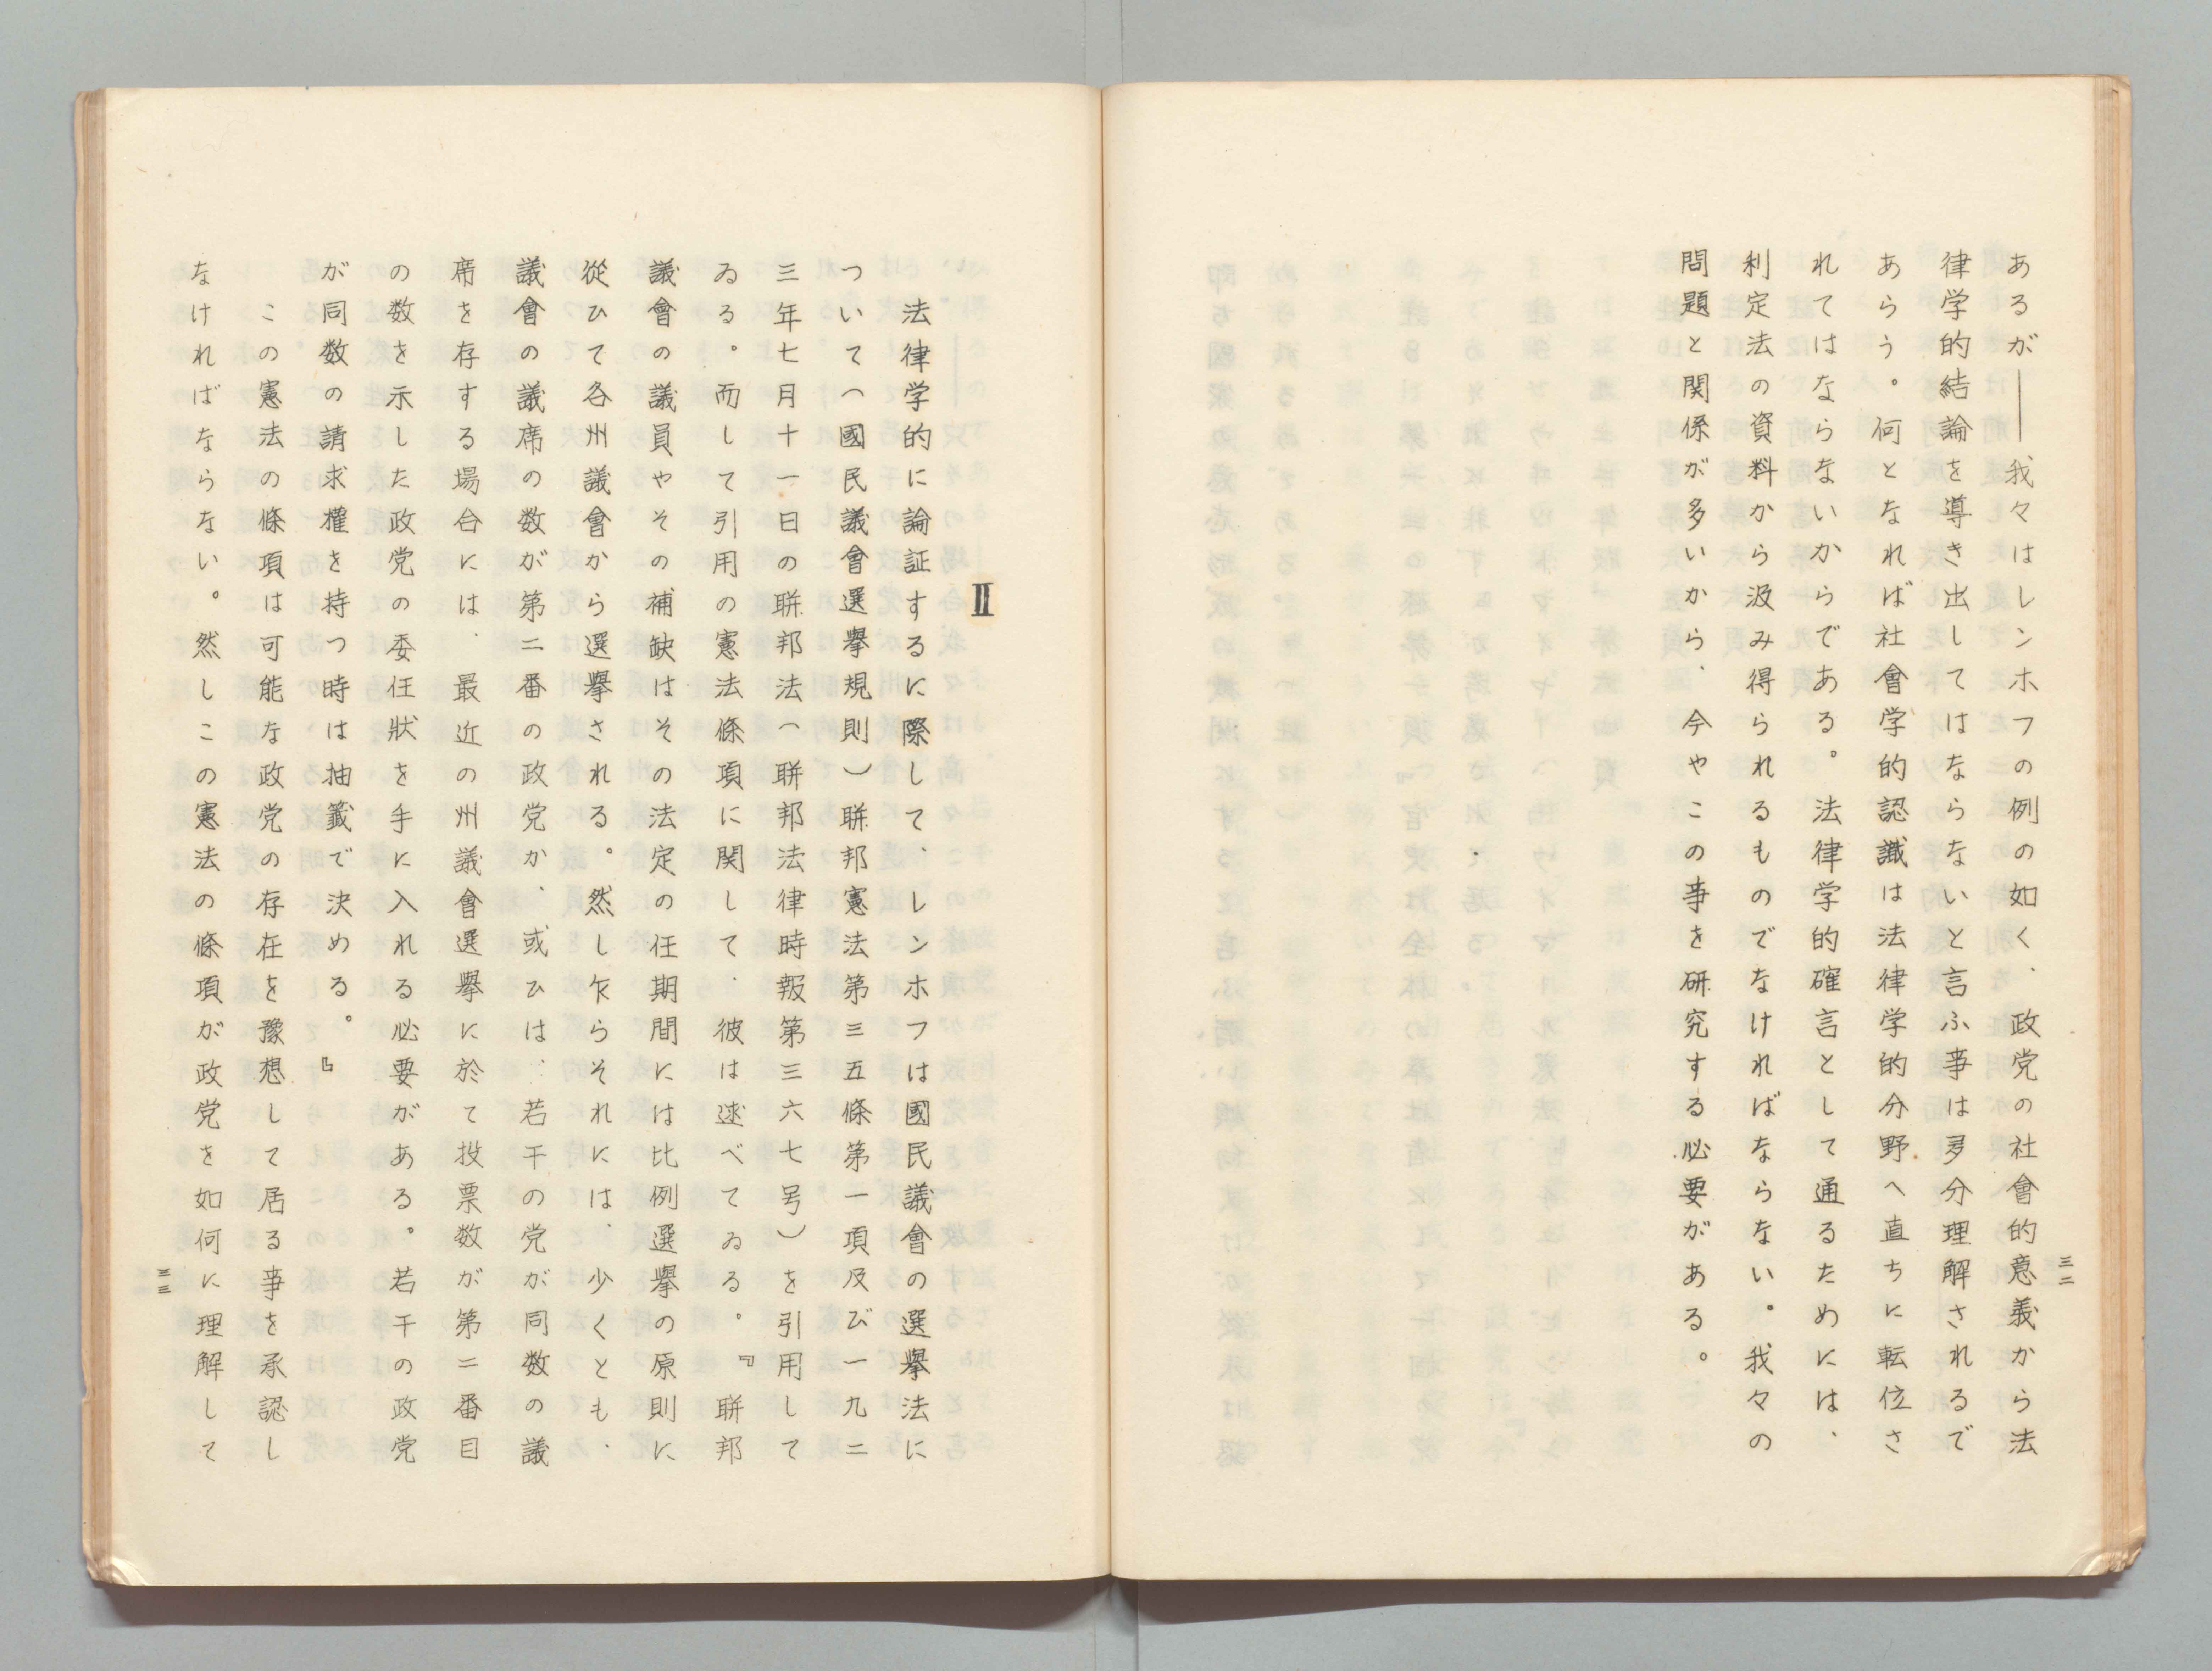 あるが――我々はレンホフの例の如く、政党の社會的意義から法
律学的結論を導き出してはならないと言ふ事は多分理解されるで
あらう。何となれば社會学的認識は法律学的分野へ直ちに転位さ
れてはならないからである。法律学的確言として通るためには、
利定法の資料から汲み得られるものでなければならない。我々の
問題と関係が多いから、今やこの事を研究する必要がある。
三二
Ⅱ
法律学的に論証するに際して、レンホフは國民議會の選擧法に
ついて（國民議會選擧規則）聯邦憲法第三五條第一項及び一九二
三年七月十一日の聯邦法（聯邦法律時報第三六七号）を引用して
ゐる。而して引用の憲法條項に関して、彼は逑べてゐる。『聯邦
議會の議員やその補缺はその法定の任期間には比例選擧の原則に
從ひて各州議會から選擧される。然し乍らそれには、少くとも、
議會の議席の数が第二番の政党か、或ひは、若干の党が同数の議
席を存する場合には、最近の州議會選擧に於て投票数が第二番目
の数を示した政党の委任狀を手に入れる必要がある。若干の政党
が同数の請求權を持つ時は抽籤で決める。』
この憲法の條項は可能な政党の存在を豫想して居る事を承認し
なければならない。然しこの憲法の條項が政党を如何に理解して
三三